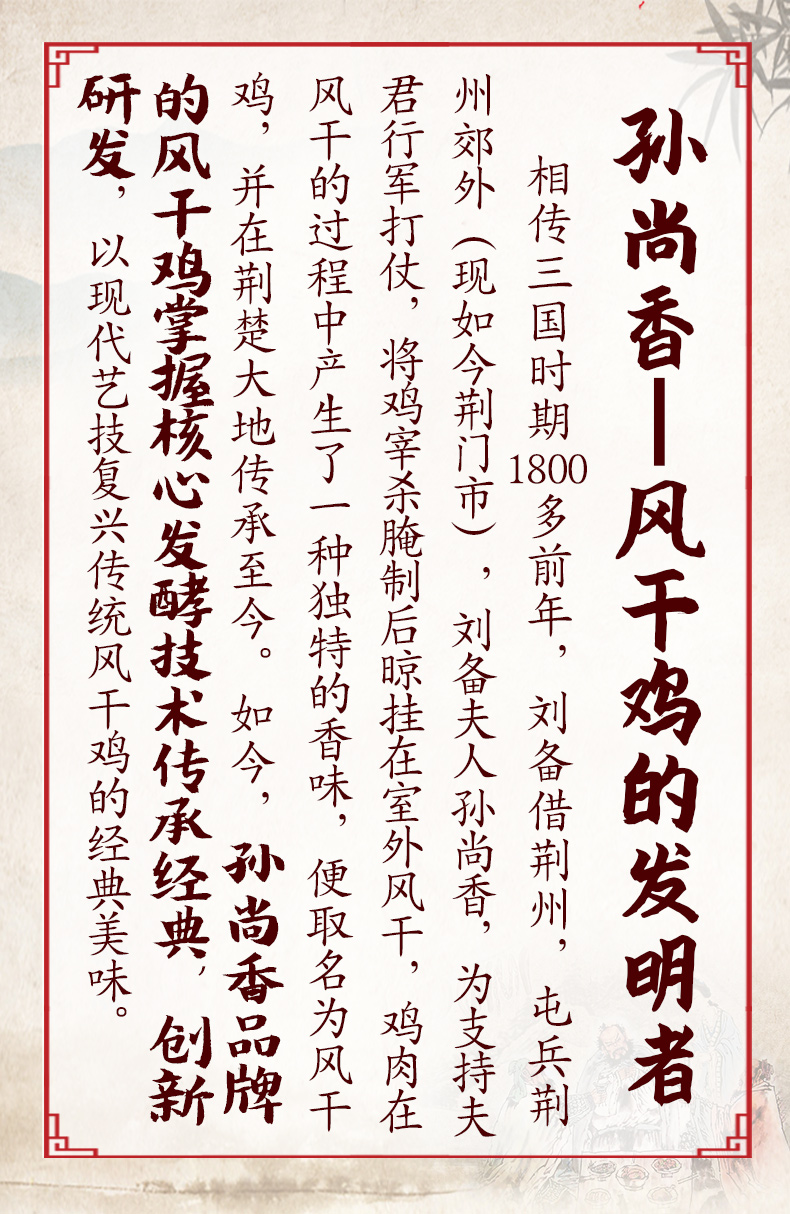 孙尚香—风干鸡的发明者
相传三国时期1800多前年，刘备借荆州，屯兵荆
州郊外（现如今荆门市），刘备夫人孙尚香，为支持夫
君行军打仗，将鸡宰杀腌制后晾挂在室外风干，鸡肉在
风干的过程中产生了一种独特的香味，便取名为风干
鸡，并在荆楚大地传承至今。如今，孙尚香品牌
的风干鸡掌握核心发酵技术传承经典，创新
研发，以现代艺技复兴传统风干鸡的经典美味。